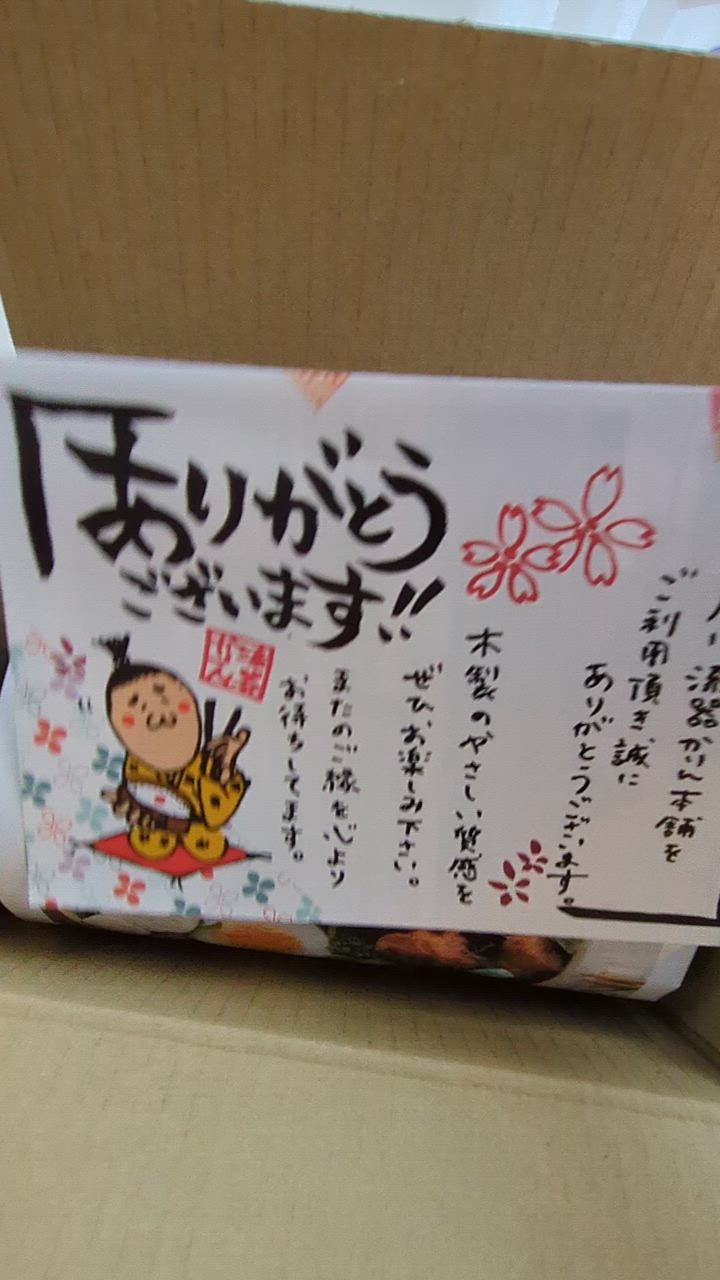 ありがとう
ございます!!
漆器かりん本舗を
ご利用頂き、誠に
ありがとうございます。
木製のやさしい質感を
ぜひ、お楽しみ下さい。
またのご縁を心より
お待ちしてます。